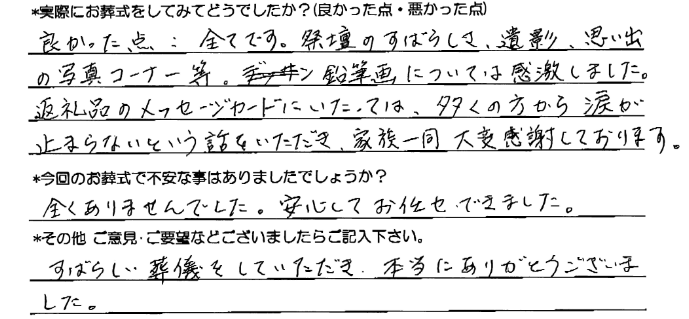 *実際にお葬式をしてみてどうでしたか？(良かった点・悪かった点)
良かった点：全てです。祭壇のすばらしさ、遺影、思い出
の写真コーナー等。鉛筆画については感激しました。
返礼品のメッセージカードにいたっては、多くの方から涙が
止まらないという話をいただき、家族一同大変感謝しております。
*今回のお葬式で不安な事はありましたでしょうか？
全くありませんでした。安心してお任せできました。
*その他 ご意見・ご要望などございましたらご記入下さい。
すばらしい葬儀をしていただき、本当にありがとうございま
した。